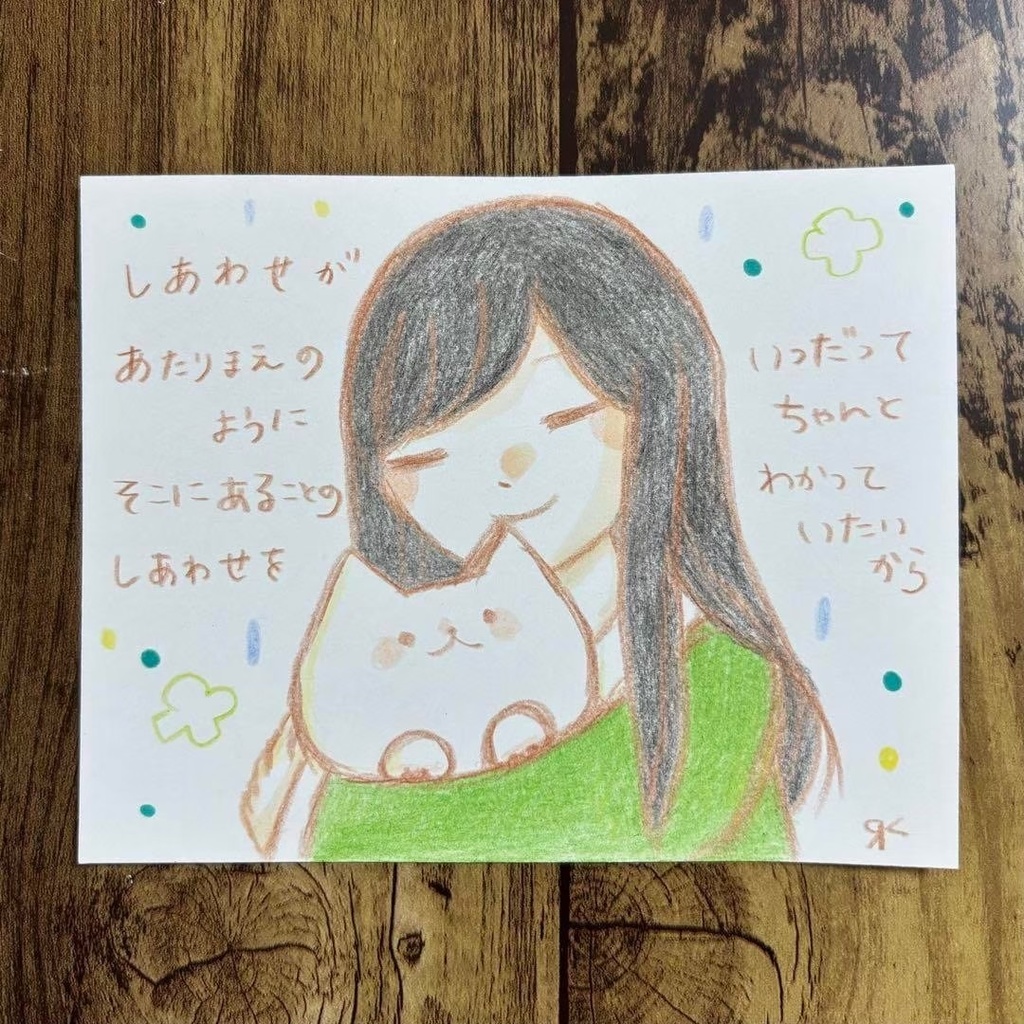 しあわせが
あたりまえの
ように
そこにあることの
しあわせを
いつだって
ちゃんと
わかって
いたい
から